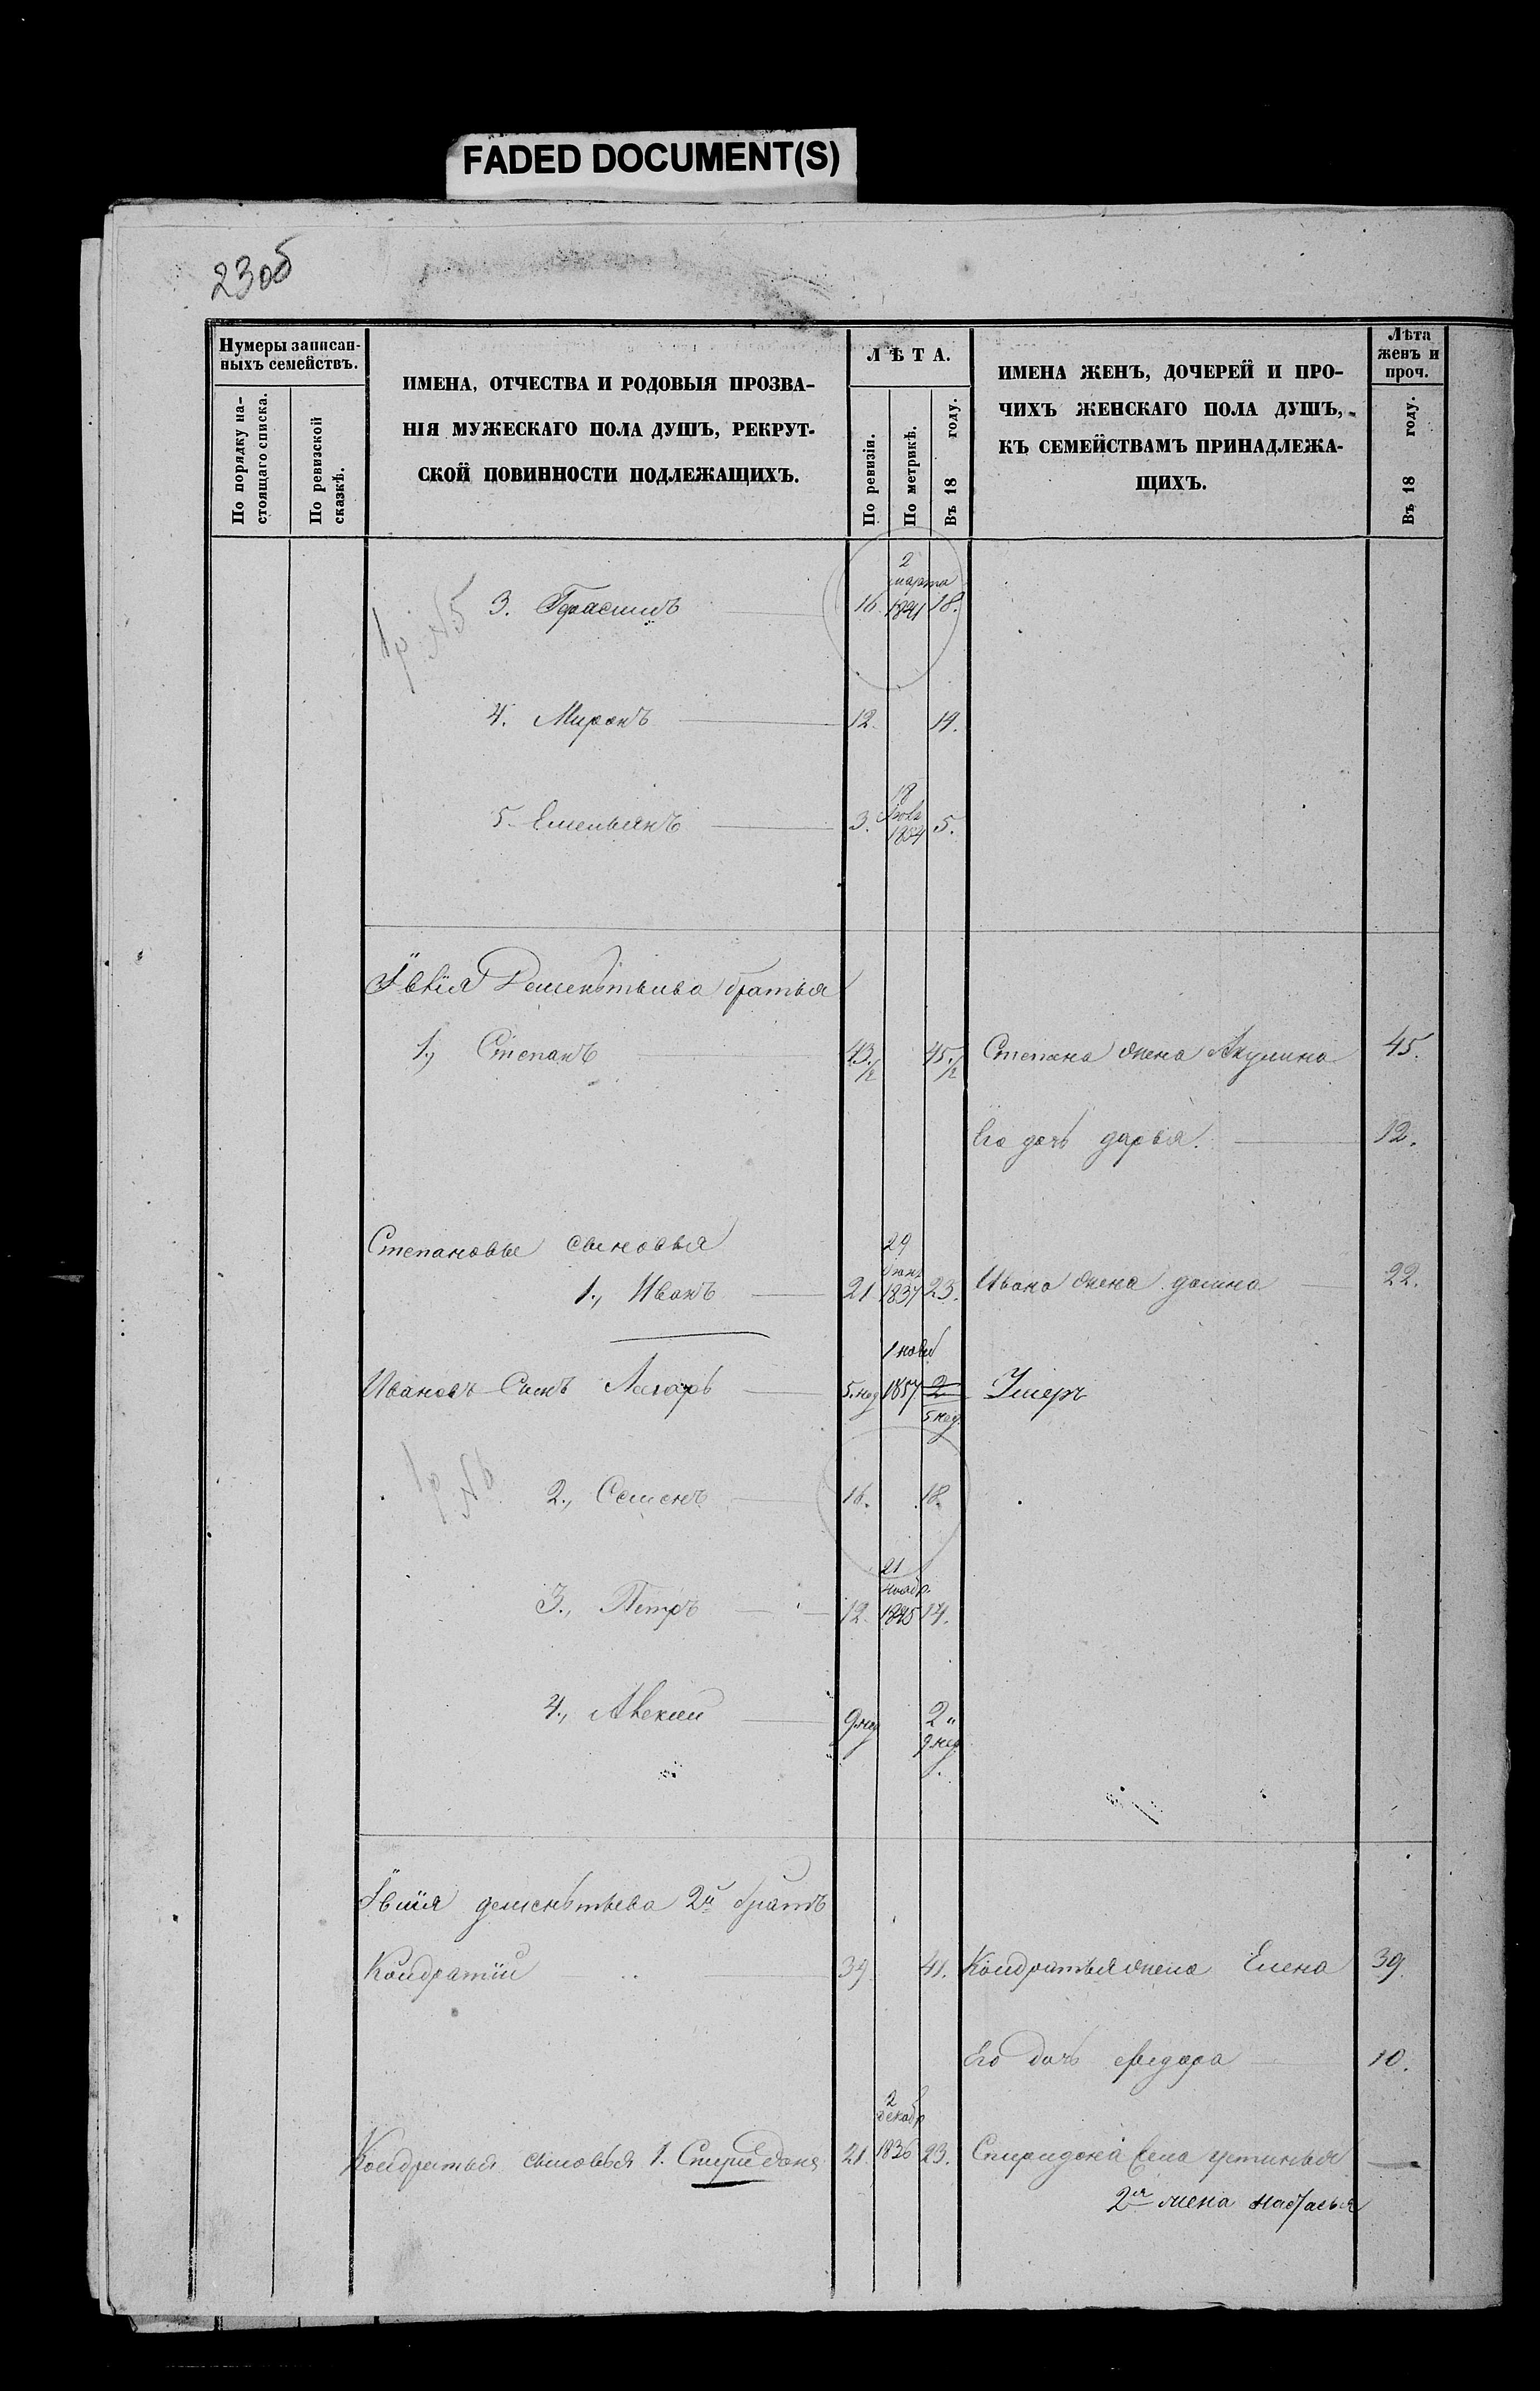 FADED DOCUMENT(S)
23об
Нумеры записан-
ныхъ семействъ.
По порядку на-
стоящаго списка.
По ревизской
сказкѣ.
ИМЕНА, ОТЧЕСТВА И РОДОВЫЯ ПРОЗВА-
НІЯ МУЖЕСКАГО ПОЛА ДУШЪ, РЕКРУТ-
СКОЙ ПОВИННОСТИ ПОДЛЕЖАЩИХЪ.
ЛѢТА.
По ревизіи.
По метрикѣ.
Въ 18 году.
ИМЕНА ЖЕНЪ, ДОЧЕРЕЙ И ПРО-
ЧИХЪ ЖЕНСКАГО ПОЛА ДУШЪ,
КЪ СЕМЕЙСТВАМЪ ПРИНАДЛЕЖА-
ЩИХЪ.
Лѣта
женъ и
проч.
Въ 18 году.
№5 3. Герасимъ 16 2 марта 1841 18.
4. Миронъ 12. 14.
5. Емельянъ 3. 5.
братья
1., Степанъ 43 1/2 45 1/2 Степана жена Акулина 45.
Его дочь дарья. 12.
Степановы сыновья
1., Иванъ 21 29 1837 23. Ивана жена домна 22.
Ивановъ Сынъ Лазарь 5.нед 1 нояб 1857 2 5 нед. Умеръ
№6 2., Семенъ 16. 18.
3., Петръ 12. 21 ноябр. 1845 14.
4., Алексей 9 нед 2 9 нед
дементьева 2й братъ
Кондратій 39 41. Кондратья жена Елена 39.
Его дочь федора 10.
Кондратья сыновья 1. Спиридонъ 21. 2 декабр 1836 23. Спиридона жена устинья
2я жена настасья